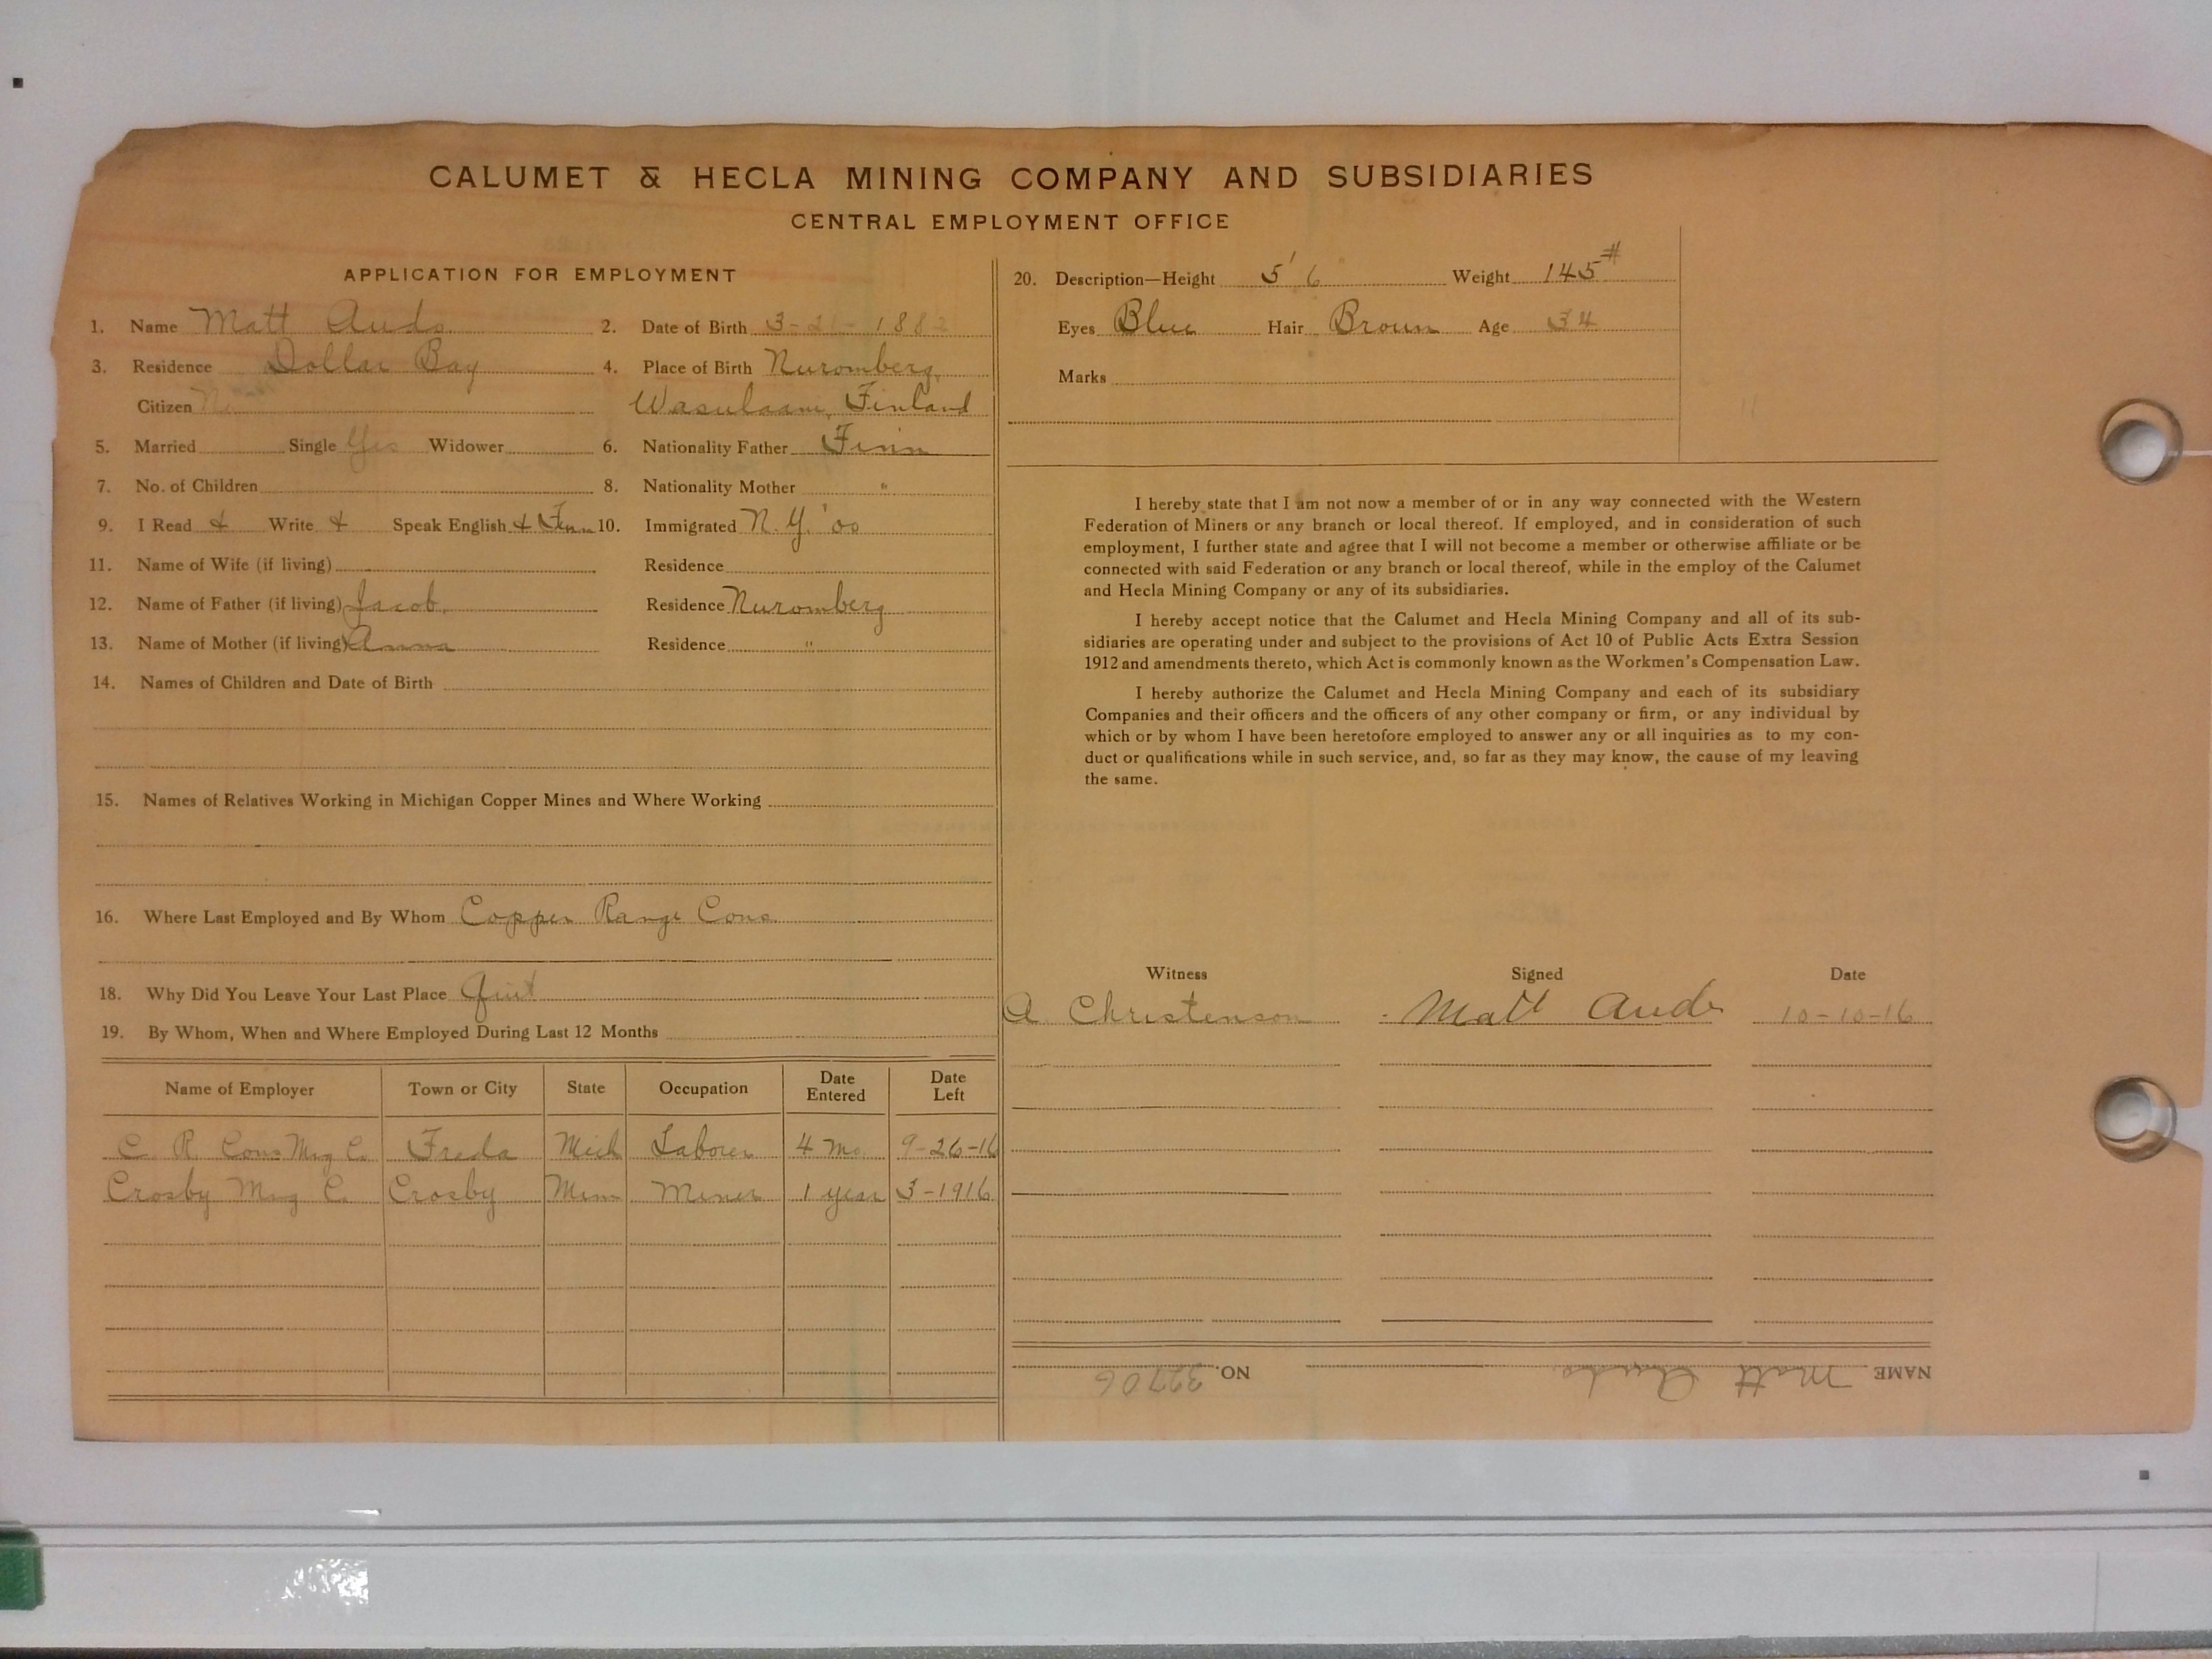 CALUMET & HECLA MINING COMPANY AND SUBSIDIARIES
CENTRAL EMPLOYMENT OFFICE
APPLICATION FOR EMPLOYMENT
1. Name Matt Ando 2. Date of Birth 3-21-1882
3. Residence Dollar Bay 4. Place of Birth Nuromberg,
Citizen No Wasulaani, Finland
5. Married Single Yes Widower 6. Nationality Father Finn
7. No. of Children 8. Nationality Mother "
9. I Read + Write + Speak English + Finn 10. Immigrated N.Y. '00
11. Name of Wife (if living) Residence
12. Name of Father (if living) Jacob, Residence Nuromberg
13. Name of Mother (if living) Anna Residence "
14. Names of Children and Date of Birth
15. Names of Relatives Working in Michigan Copper Mines and Where Working
16. Where Last Employed and By Whom Copper Range Cons.
18. Why Did You Leave Your Last Place Quit
19. By Whom, When and Where Employed During Last 12 Months
Name of Employer Town or City State Occupation Date Entered Date Left
C. R. Cons Mng Co. Freda Mich Laborer 4 mo. 9-26-16
Crosby Mng C. Crosby Minn Miner 1 year 3-1916
20. Description—Height 5' 6 Weight 145#
Eyes Blue Hair Brown Age 34
Marks
I hereby state that I am not now a member of or in any way connected with the Western
Federation of Miners or any branch or local thereof. If employed, and in consideration of such
employment, I further state and agree that I will not become a member or otherwise affiliate or be
connected with said Federation or any branch or local thereof, while in the employ of the Calumet
and Hecla Mining Company or any of its subsidiaries.
I hereby accept notice that the Calumet and Hecla Mining Company and all of its sub-
sidiaries are operating under and subject to the provisions of Act 10 of Public Acts Extra Session
1912 and amendments thereto, which Act is commonly known as the Workmen's Compensation Law.
I hereby authorize the Calumet and Hecla Mining Company and each of its subsidiary
Companies and their officers and the officers of any other company or firm, or any individual by
which or by whom I have been heretofore employed to answer any or all inquiries as to my con-
duct or qualifications while in such service, and, so far as they may know, the cause of my leaving
the same.
Witness Signed Date
A. Christenson Matt Ando 10-10-16
NAME Matt Ando NO. 32706